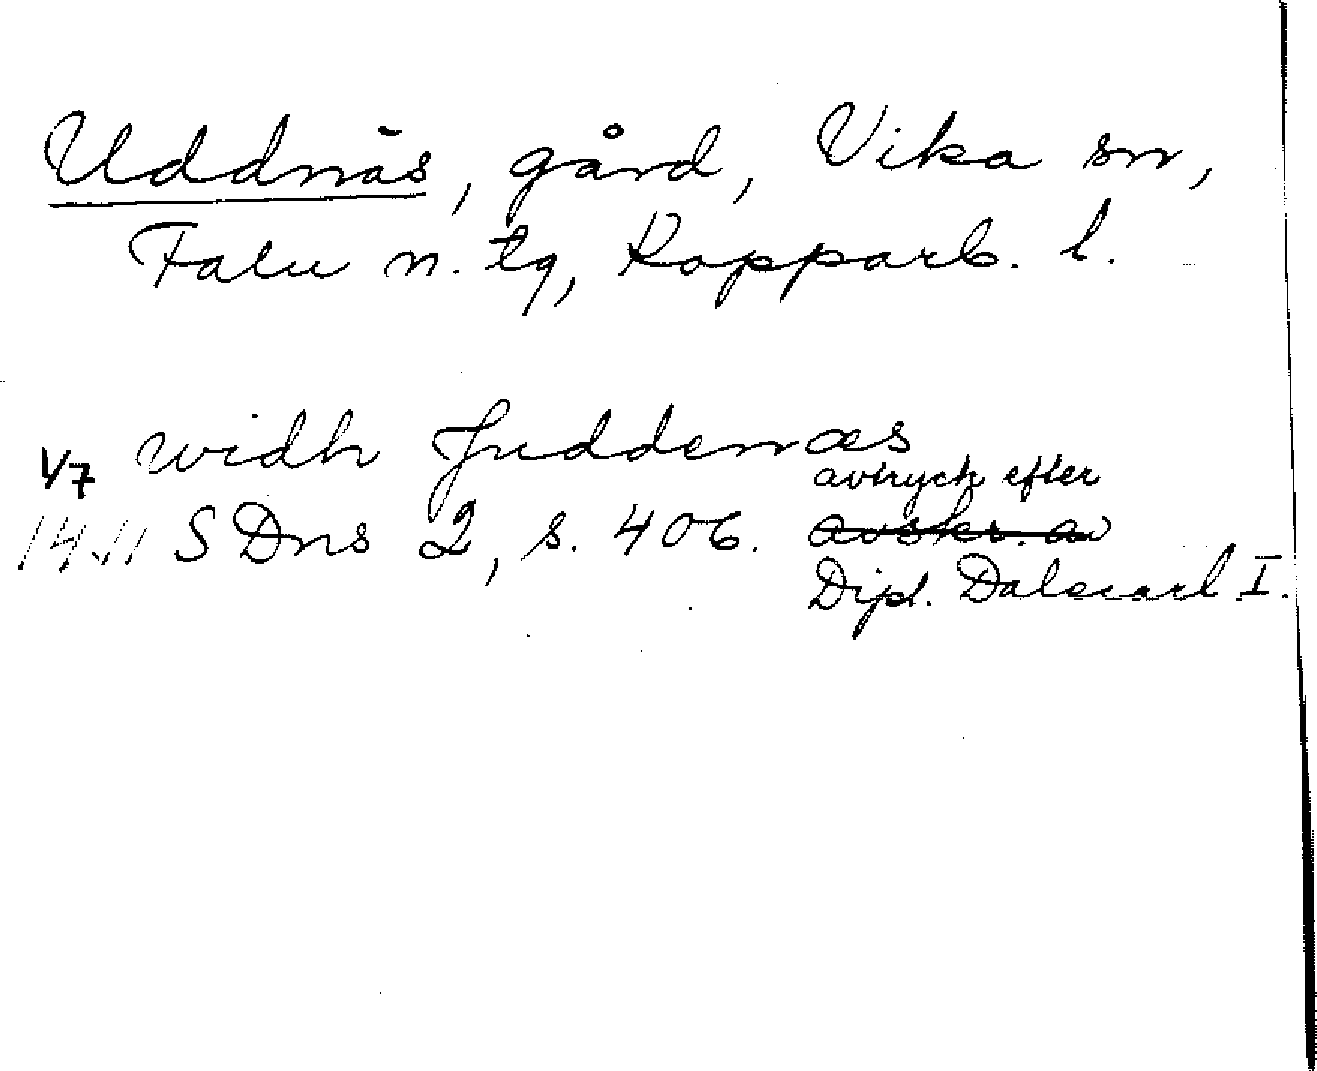 Uddnäs, gård, Vika sn,
Falu n. tg, Kopparb. l.
widh Juddenæs
1/7 avtryck efter
1411 SDns 2, s. 406. avskr. av
Dipl. Dalecarl I.